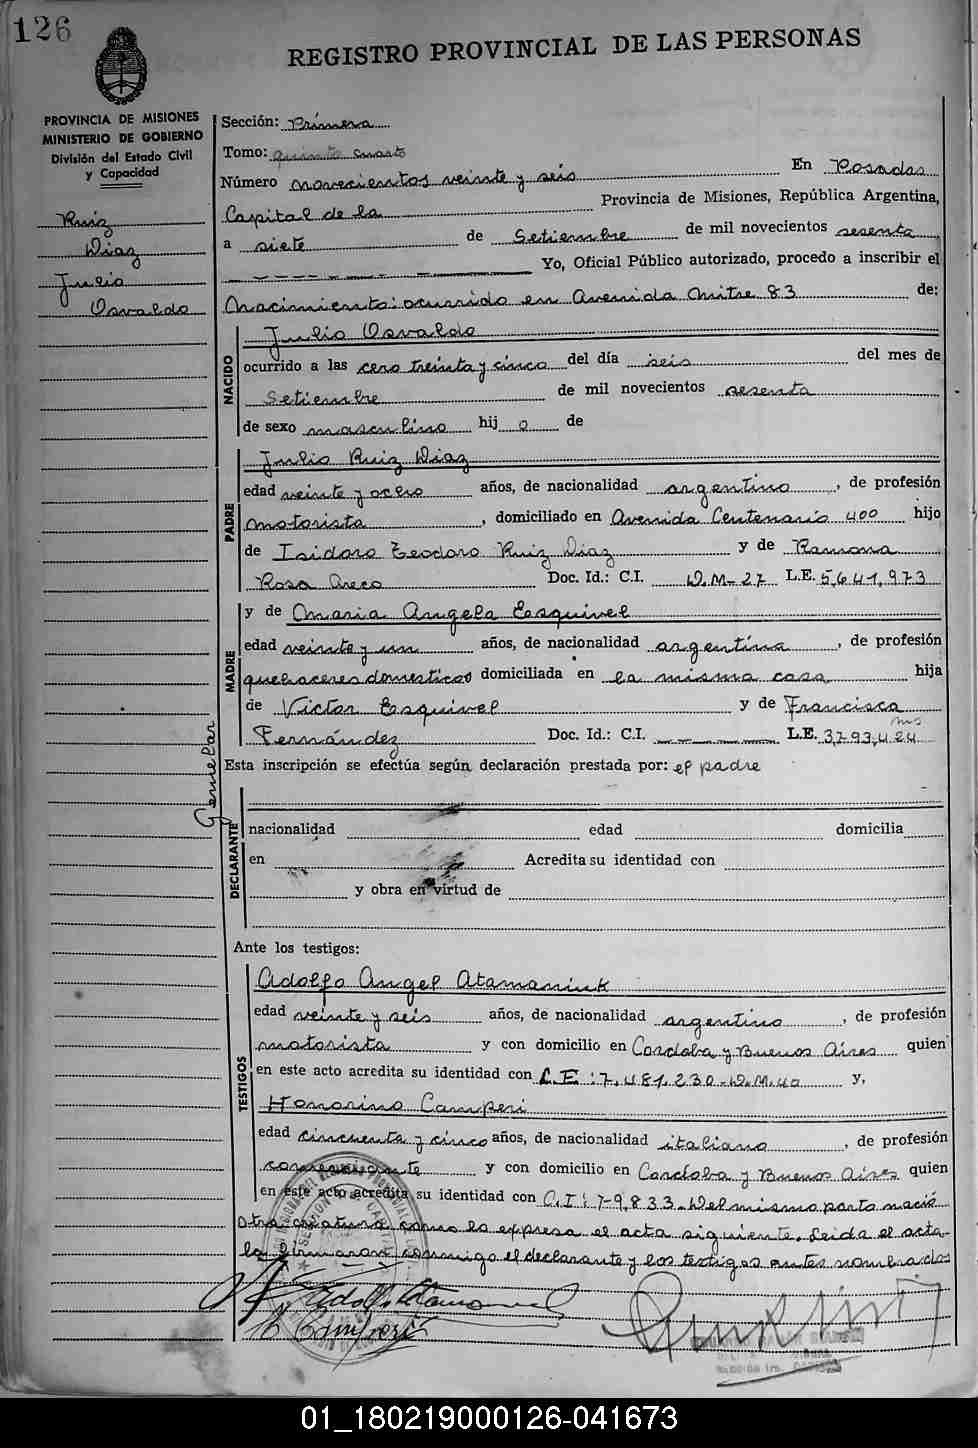 126
REGISTRO PROVINCIAL DE LAS PERSONAS
PROVINCIA DE MISIONES
MINISTERIO DE GOBIERNO
División del Estado Civil
y Capacidad
Ruiz
Diaz
Julio
Osvaldo
Gemelar
Sección: Primera
Tomo: quinto cuarto
Número novecientos veinte y seis En Posadas
Capital de la Provincia de Misiones, República Argentina,
a siete de Setiembre de mil novecientos sesenta
Yo, Oficial Público autorizado, procedo a inscribir el
Nacimiento: ocurrido en Avenida Mitre 83 de:
NACIDO
Julio Osvaldo
ocurrido a las cero treinta y cinco del día seis del mes de
Setiembre de mil novecientos sesenta
de sexo masculino hij o de
PADRE
Julio Ruiz Diaz
edad veinte y ocho años, de nacionalidad argentino, de profesión
motorista, domiciliado en Avenida Centenario 400 hijo
de Isidoro Teodoro Ruiz Diaz y de Ramona
Rosa Areco Doc. Id.: C.I. D.M-27 L.E. 5.641.973
MADRE
y de Maria Angela Esquivel
edad veinte y un años, de nacionalidad argentina, de profesión
quehaceres domesticos domiciliada en la misma casa hija
de Victor Esquivel y de Francisca
Fernández Doc. Id.: C.I. L.E. 3.793.424
Esta inscripción se efectúa según declaración prestada por: el padre
DECLARANTE
nacionalidad edad domicilia
en Acredita su identidad con
y obra en virtud de
Ante los testigos:
TESTIGOS
Adolfo Angel Atamaniuk
edad veinte y seis años, de nacionalidad argentino, de profesión
motorista y con domicilio en Cordoba y Buenos Aires quien
en este acto acredita su identidad con L.E: 7.481.230-D.M.40 y,
Honorino Camperi
edad cincuenta y cinco años, de nacionalidad italiano, de profesión
comerciante y con domicilio en Cordoba y Buenos Aires quien
en este acto acredita su identidad con C.I: 7-9.833. Del mismo parto nació
otra criatura como lo expresa el acta siguiente. Leida el acta
la firmaron conmigo el declarante y los testigos antes nombrados
01_180219000126-041673